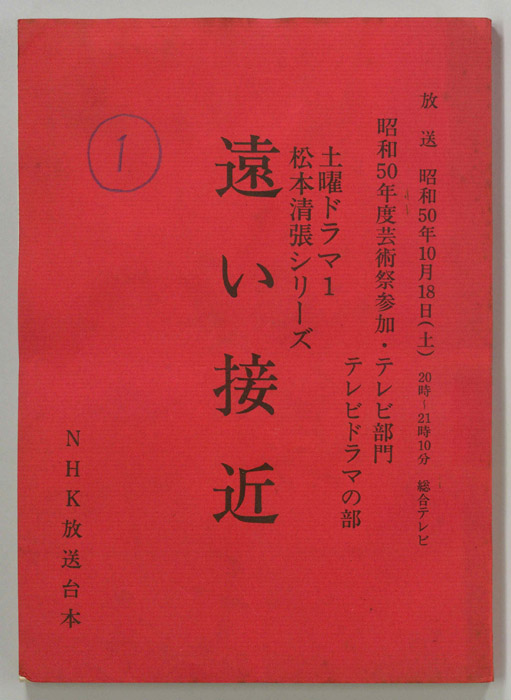 放送 昭和50年10月18日(土) 20時~21時10分 総合テレビ
昭和50年度芸術祭参加・テレビ部門
テレビドラマの部
土曜ドラマ1
松本清張シリーズ
遠い接近
1
NHK放送台本